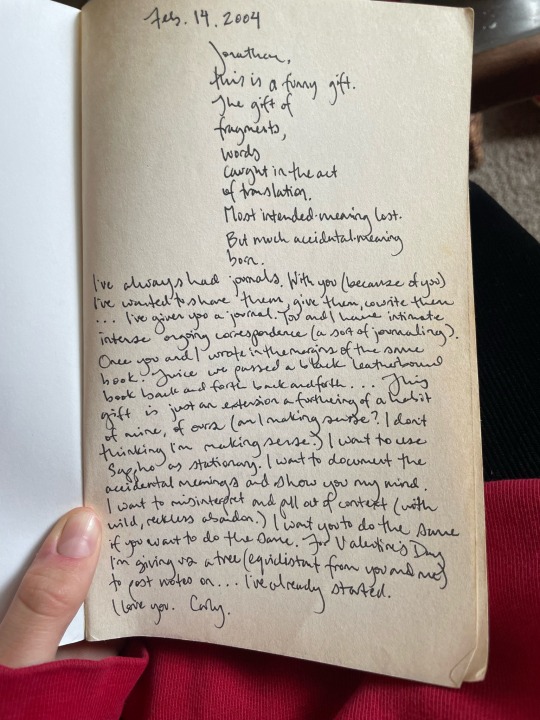 Feb. 14. 2004
Jonathan,
this is a funny gift.
The gift of
fragments,
words
caught in the act
of translation.
Most intended-meaning lost.
But much accidental-meaning
born.
I've always had journals. With you (because of you)
I've wanted to share them, give them, cowrite them
... I've given you a journal. You and I have intimate
intense ongoing correspondence (a sort of journaling).
Once you and I wrote in the margins of the same
book. Twice we passed a black leatherbound
book back and forth back and forth... This
gift is just an extension a furthering of a habit
of mine, of ours (am I making sense? I don't
thinking I'm making sense.) I want to use
Sappho as stationary. I want to document the
accidental meanings and show you my mind.
I want to misinterpret and pull out of context (with
wild, reckless abandon.) I want you to do the same
if you want to do the same. For Valentine's Day
I'm giving us a tree (equidistant from you and me)
to post notes on... I've already started.
I love you. Carly.